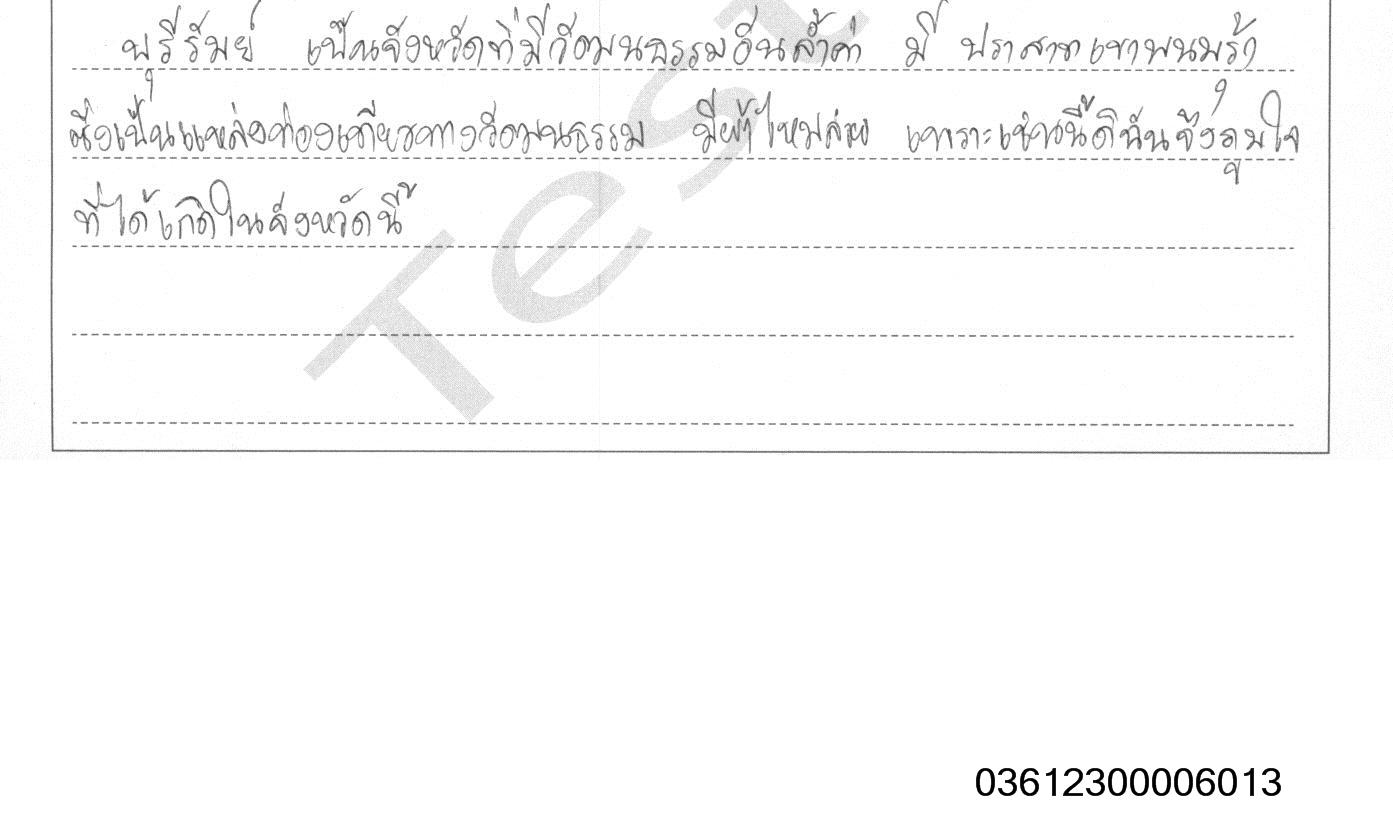 บุรีรัมย์ เป็นจังหวัดที่มีวัฒนธรรมอันล้ำค่า มี ปราสาทเขาพนมรุ้ง
ซึ่งเป็นแหล่งท่องเที่ยวทางวัฒนธรรม มีผ้าไหมสวย เพราะเช่นนี้ดิฉันจึงภูมิใจ
ที่ได้เกิดในจังหวัดนี้
Test
03612300006013